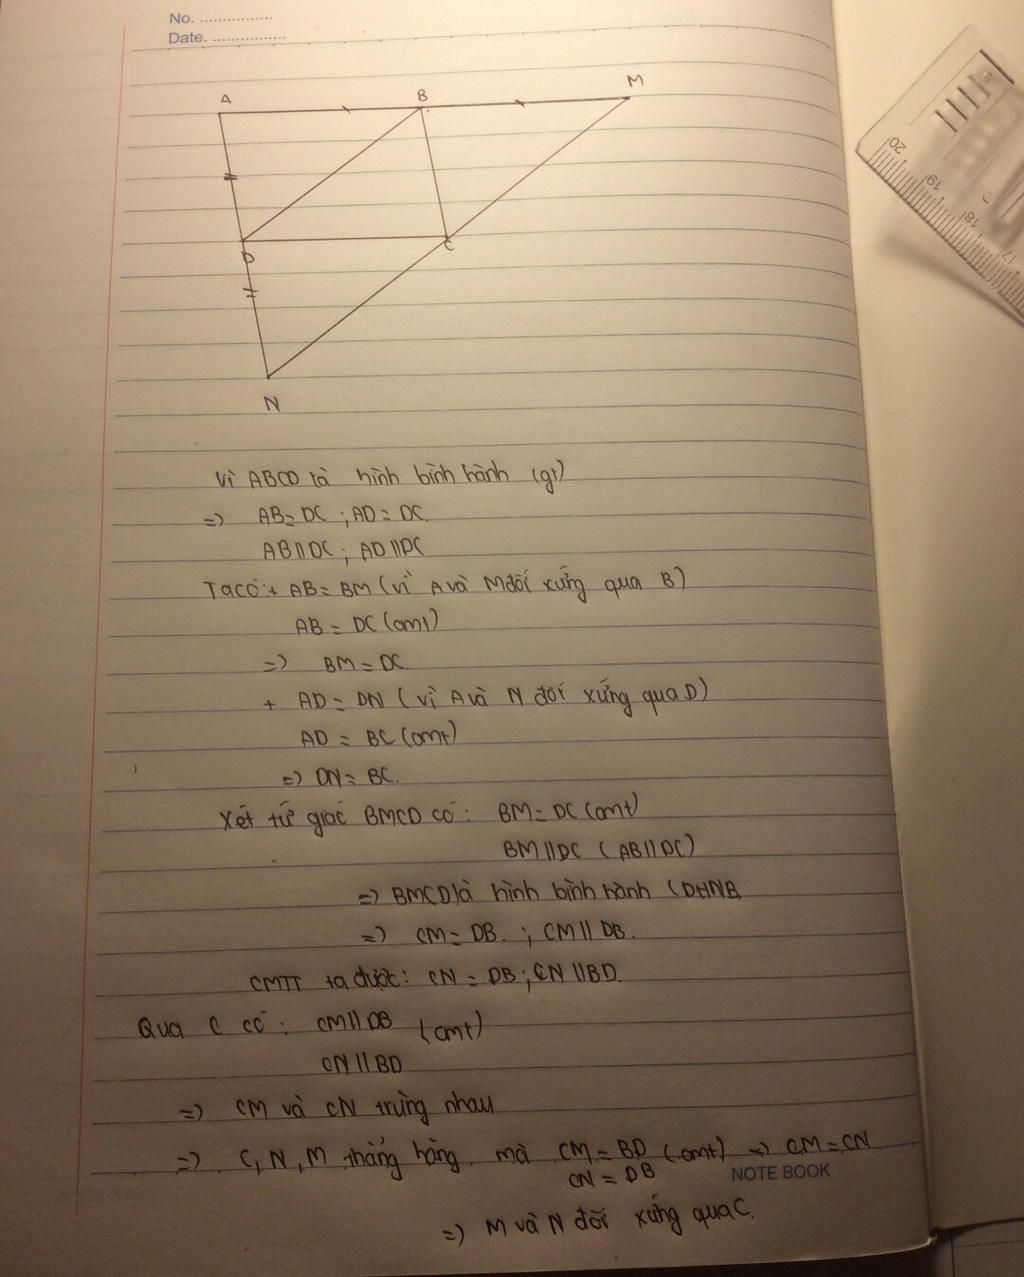 No. ................
Date. ................
A B M
D C
N
Vì ABCD là hình bình hành (gt)
=> AB = DC ; AD = DC.
AB // DC ; AD // DC
Ta có: + AB = BM (vì A và M đối xứng qua B)
AB = DC (cmt)
=> BM = DC.
+ AD = DN (vì A và N đối xứng qua D)
AD = BC (cmt)
=> DN = BC.
Xét tứ giác BMCD có: BM = DC (cmt)
BM // DC (AB // DC)
=> BMCD là hình bình hành (DHNB
=> CM = DB. ; CM // DB.
CMTT ta được: CN = DB ; CN // BD.
Qua C có: CM // DB (cmt)
CN // BD
=> CM và CN trùng nhau
=> C, N, M thẳng hàng. mà CM = BD (cmt) => CM = CN
CN = DB
NOTE BOOK
=> M và N đối xứng qua C.
20 19 18 17